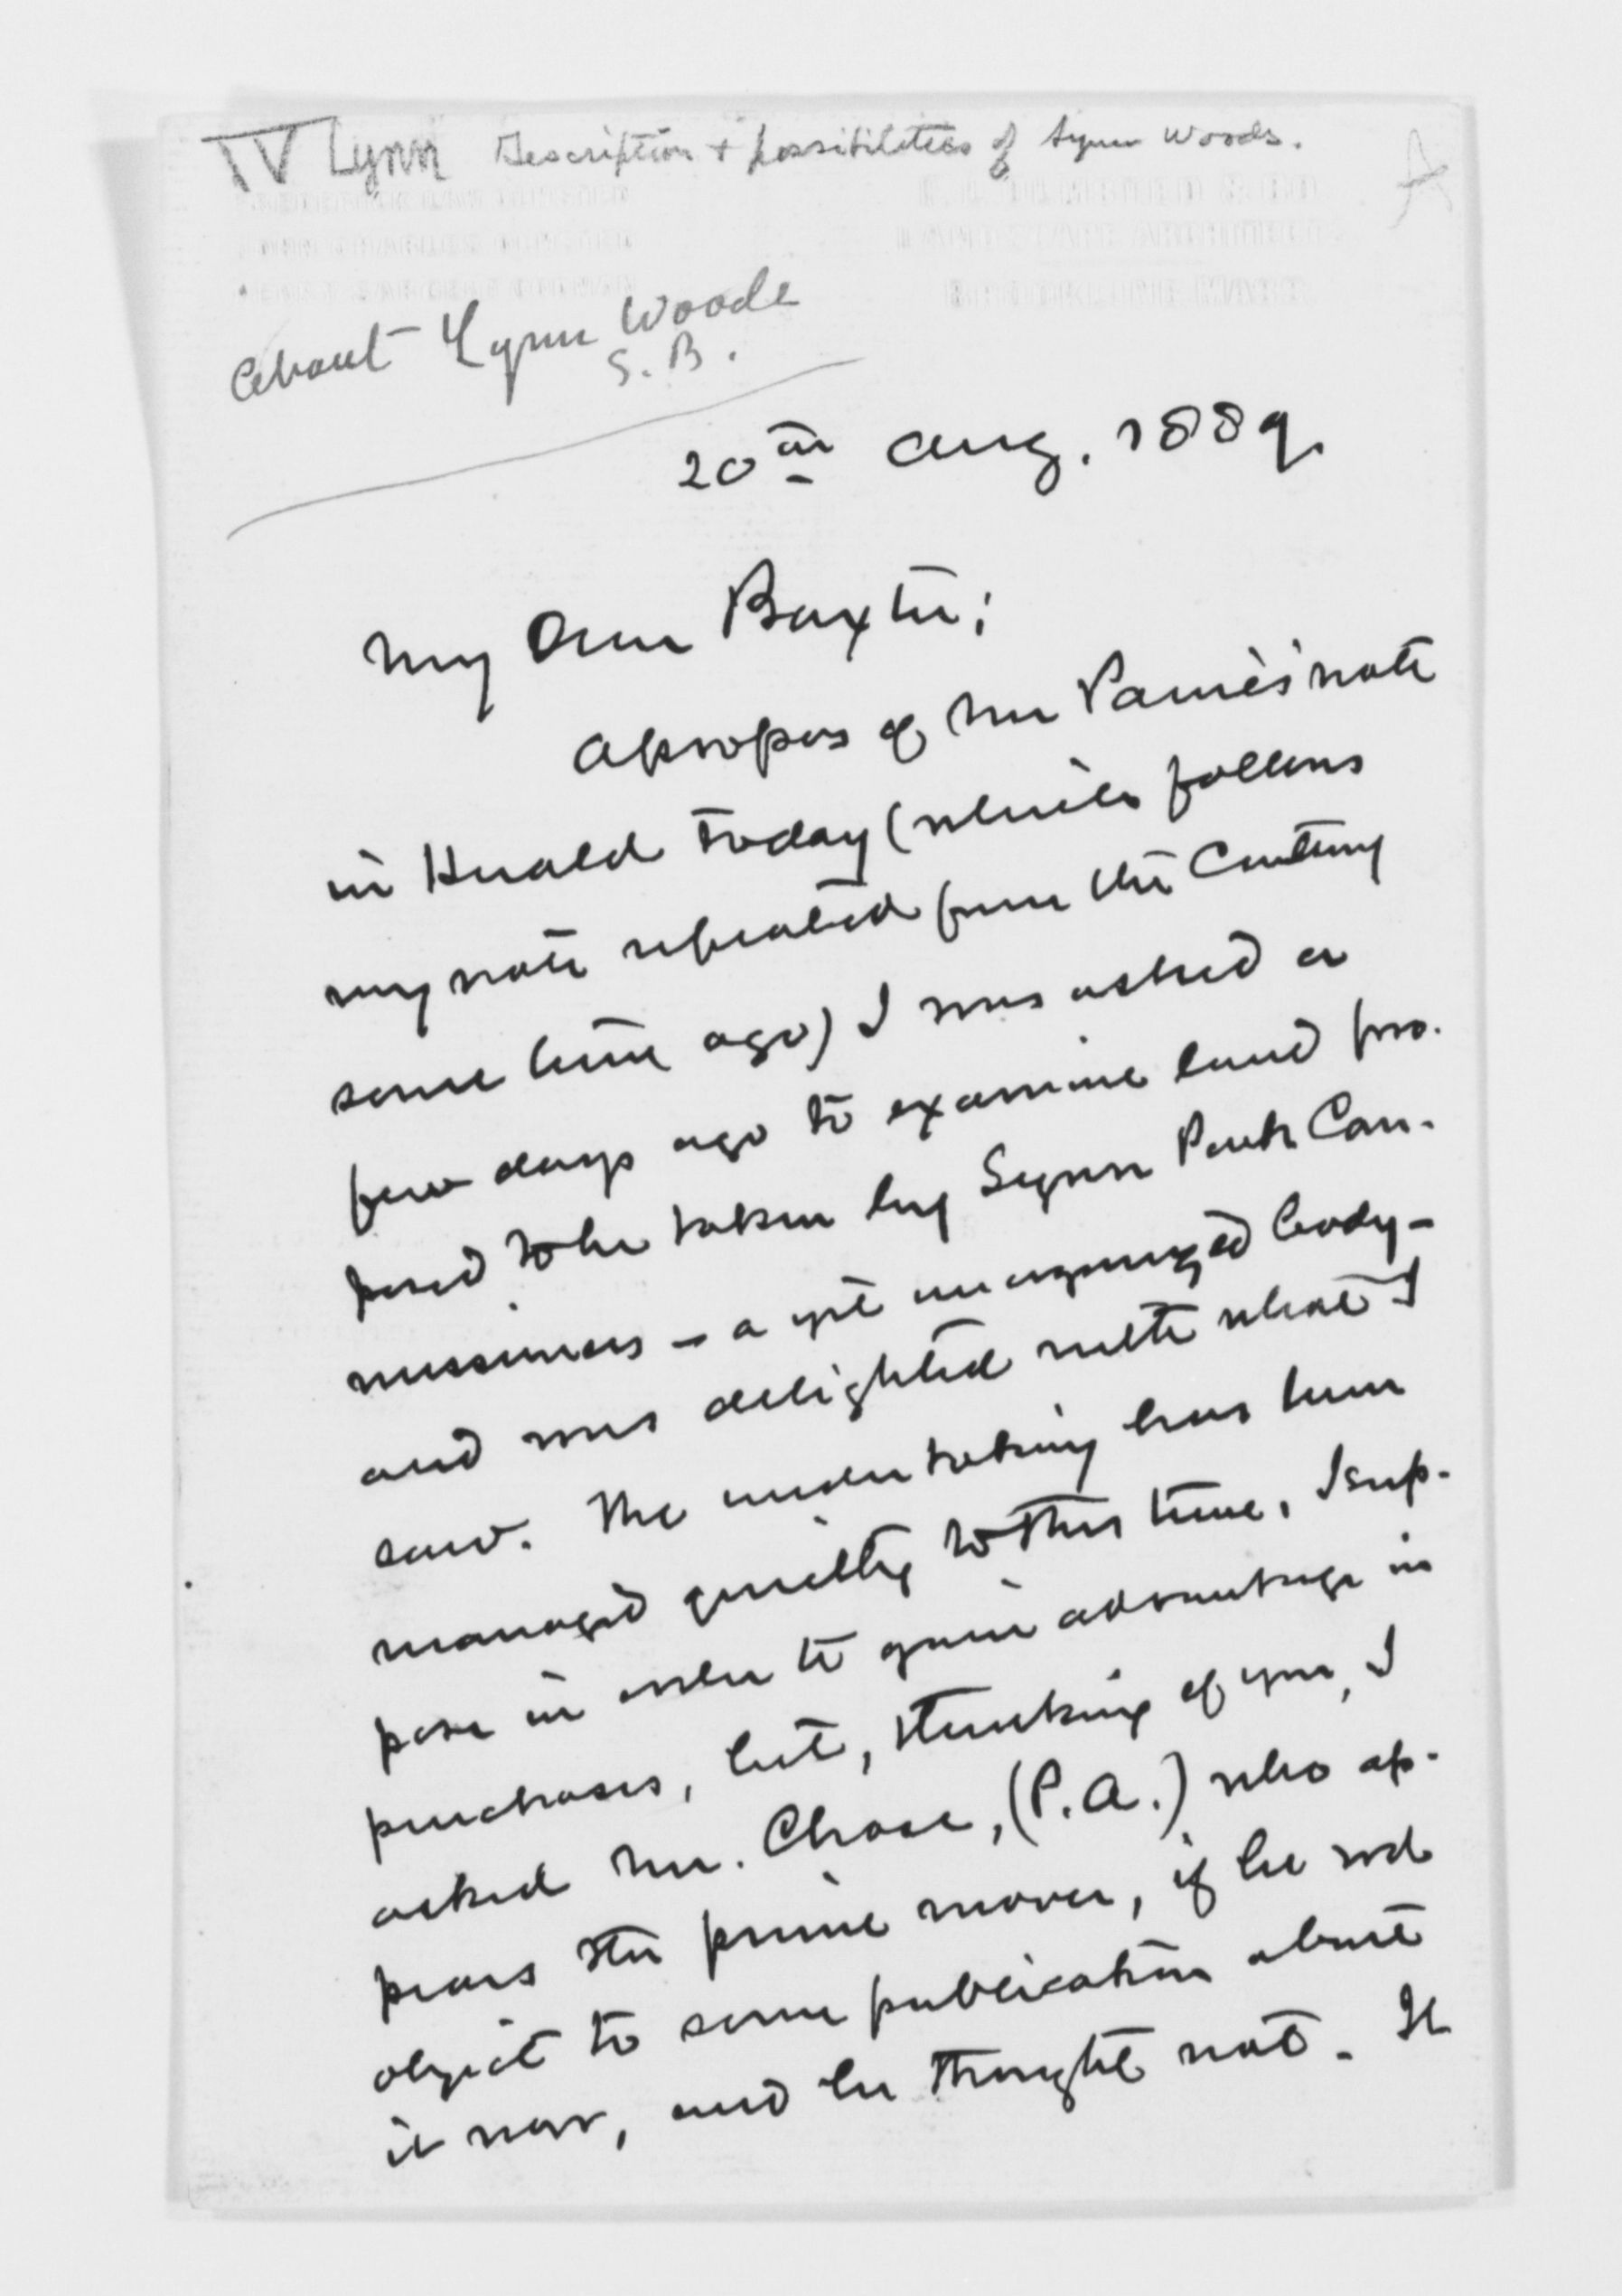 IV Lynn Description + possibilities of Lynn Woods.
A
About Lynn Woods
S. B.
20th Aug. 1889.
My Dear Baxter;
Apropos of Mr Paine's note
in Herald today (which follows
my note repeated from the Century
some time ago) I was asked a
few days ago to examine land pro-
posed to be taken by Lynn Park Com-
missioners – a yet unorganized body –
and was delighted with what I
saw. The undertaking has been
managed quietly to this time, I sup-
pose in order to gain advantage in
purchases, but, thinking of you, I
asked Mr. Chase, (P.A.) who ap-
pears the prime mover, if he wd
object to some publication about
it now, and he thought not. It